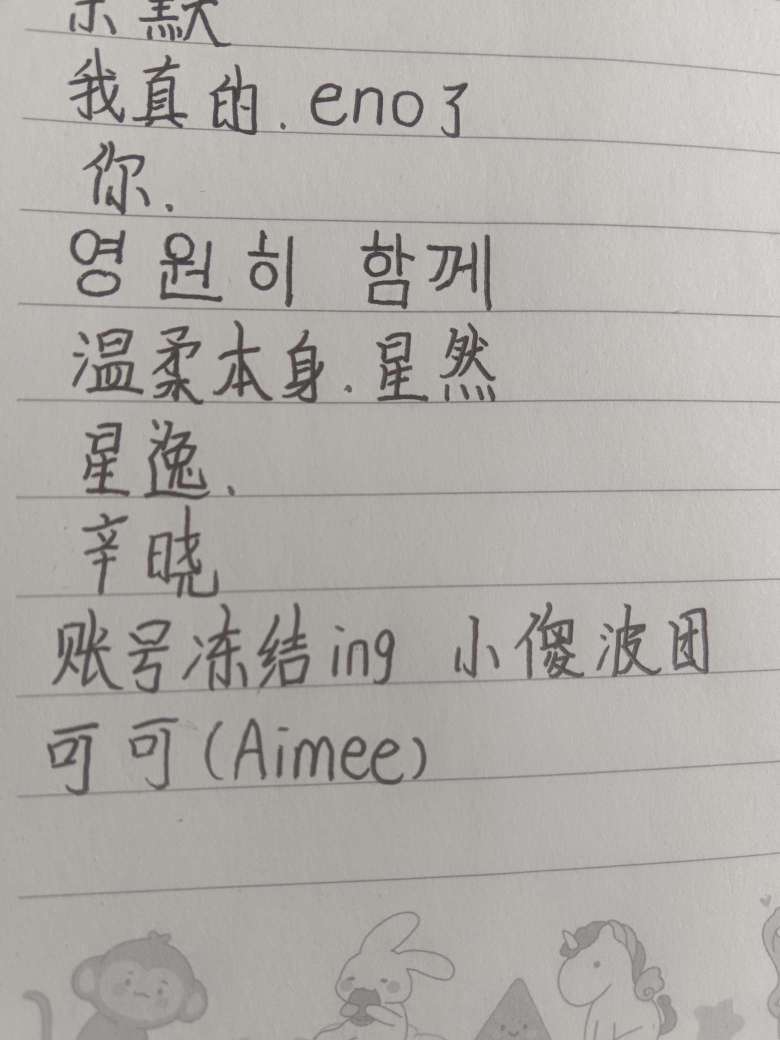 我真的.eno了
你.
영원히 함께
温柔本身.星然
星逸.
辛晓
账号冻结ing 小傻波团
可可(Aimee)